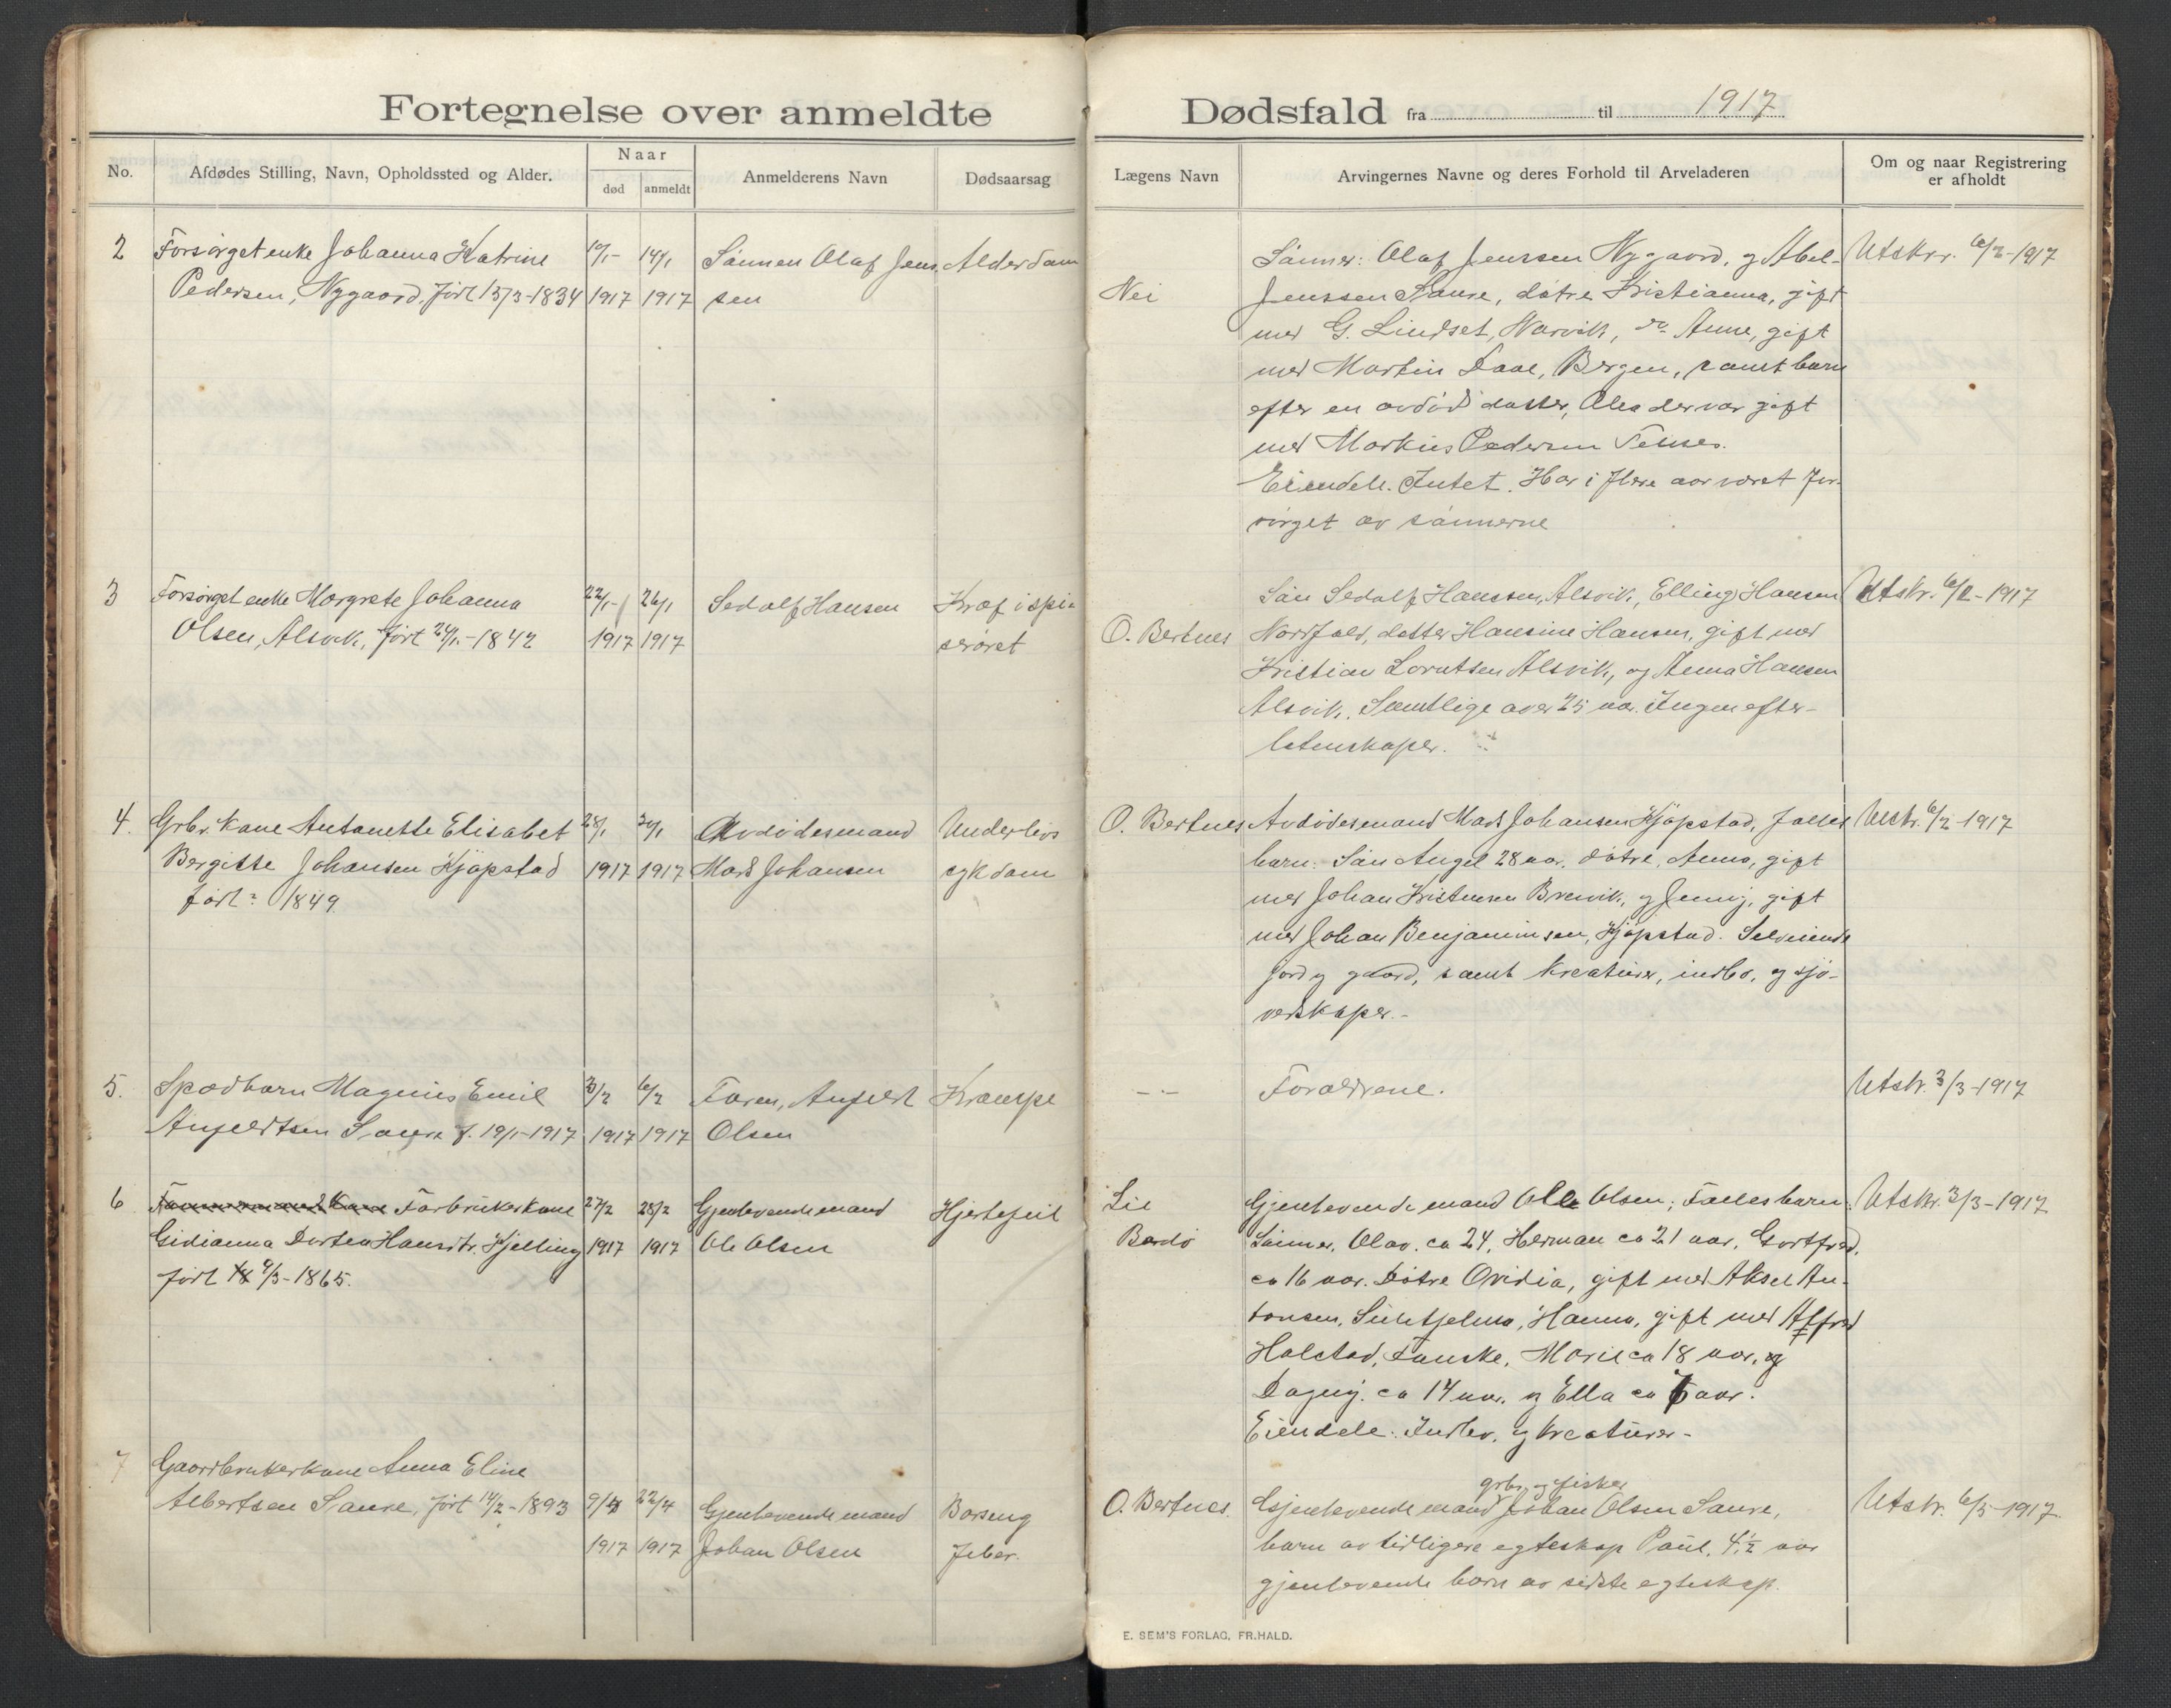 Fortegnelse over anmeldte Dødsfald fra til 1917
No.
Afdødes Stilling, Navn, Opholdssted og Alder.
Naar
død
anmeldt
Anmelderens Navn
Dødsaarsag
Lægens Navn
Arvingernes Navne og deres Forhold til Arveladeren
Om og naar Registrering
er afholdt
2
Forsørget enke Johanna Katrine
Pedersen, Nygaard, født 15/3-1834
10/1-
1917
14/1
1917
Sønnen Olaf Jens
sen
Alderdom
Nei
Sønner: Olaf Jenssen Nygaard, og Abel
Jenssen Saure, døtre Kristianna, gift
med G. Lindset, Narvik, do Anne, gift
med Martin Daae, Bergen, samt barn
efter en avdød datter, Olea der var gift
med Markus Pedersen
Eiendele. Intet. Har i flere aar været for-
sørget av sønnerne
Utskr. 6/2-1917
3
Forsørget enke Margrete Johanna
Olsen, Alsvik, født 24/1-1842
22/1-
1917
26/1
1917
Sedolf Hansen
Kræf i spi-
serøret
O. Bertnes
Søn Sedolf Hanssen, Alsvik, Elling Hansen
Nordfold, datter Hansine Hansen, gift med
Kristian Lorntsen Alsvik, og Anna Hansen
Alsvik. Samtlige over 25 aar. Ingen efter-
latenskaper.
Utskr. 6/2-1917
4.
Grbr. kone Antonette Elisabet
Bergitte Johansen Kjøpstad
født 1849
28/1
1917
30/1
1917
Avdødes mand
Mads Johansen
Underlivs
sykdom
O. Bertnes
Avdødes mand Mads Johansen Kjøpstad, Fælles
barn: Søn Angel 28 aar. døtre, Anna, gift
med Johan Kristensen Brevik, og Jenny, gift
med Johan Benjaminsen, Kjøpstad. Selveiende
jord og gaard, samt kreaturer, indbo, og sjø-
redskaper.-
Utskr. 6/2-1917
5.
Spædbarn Magnus Emil
Anfeldtsen Saure f. 19/1-1917
3/2
1917
6/2
1917
Faren, Anfeldt
Olsen
Krampe
- -
Forældrene.
Utskr. 3/3-1917
6
Forbrukerkone
Gidianna Dortea Hansdtr. Kjelling
født 9/3-1865.
27/2
1917
28/2
1917
Gjenlevende mand
Ole Olsen
Hjertefeil
Lie
Bodø
Gjenlevende mand Ole Olsen; Fælles barn:
Sønner, Olav. ca 24, Herman ca 21 aar, Gottfred,
ca 16 aar. Døtre Ovidia, gift med Aksel An-
tonsen, Sulitjelma, Hanna, gift med Alfred
Halstad, Fauske, Marie ca 18 aar, og
Dagny. ca 14 aar. og Ella ca 6 aar.
Eiendele: Indbo. og kreaturer-
Utskr. 3/3-1917
7
Gaardbrukerkone Anna Eline
Albertsen Saure, født 14/2-1893
9/4
1917
22/4
1917
Gjenlevende mand
Johan Olsen
Barseng
feber.
O. Bertnes.
grbr. og fisker
Gjenlevende mand Johan Olsen Saure,
barn av tidligere egteskap Paul, 4 1/2 aar
gjenlevende barn av sidste egteskap.
Utskr. 6/5-1917.
E. SEM'S FORLAG, FR.HALD.